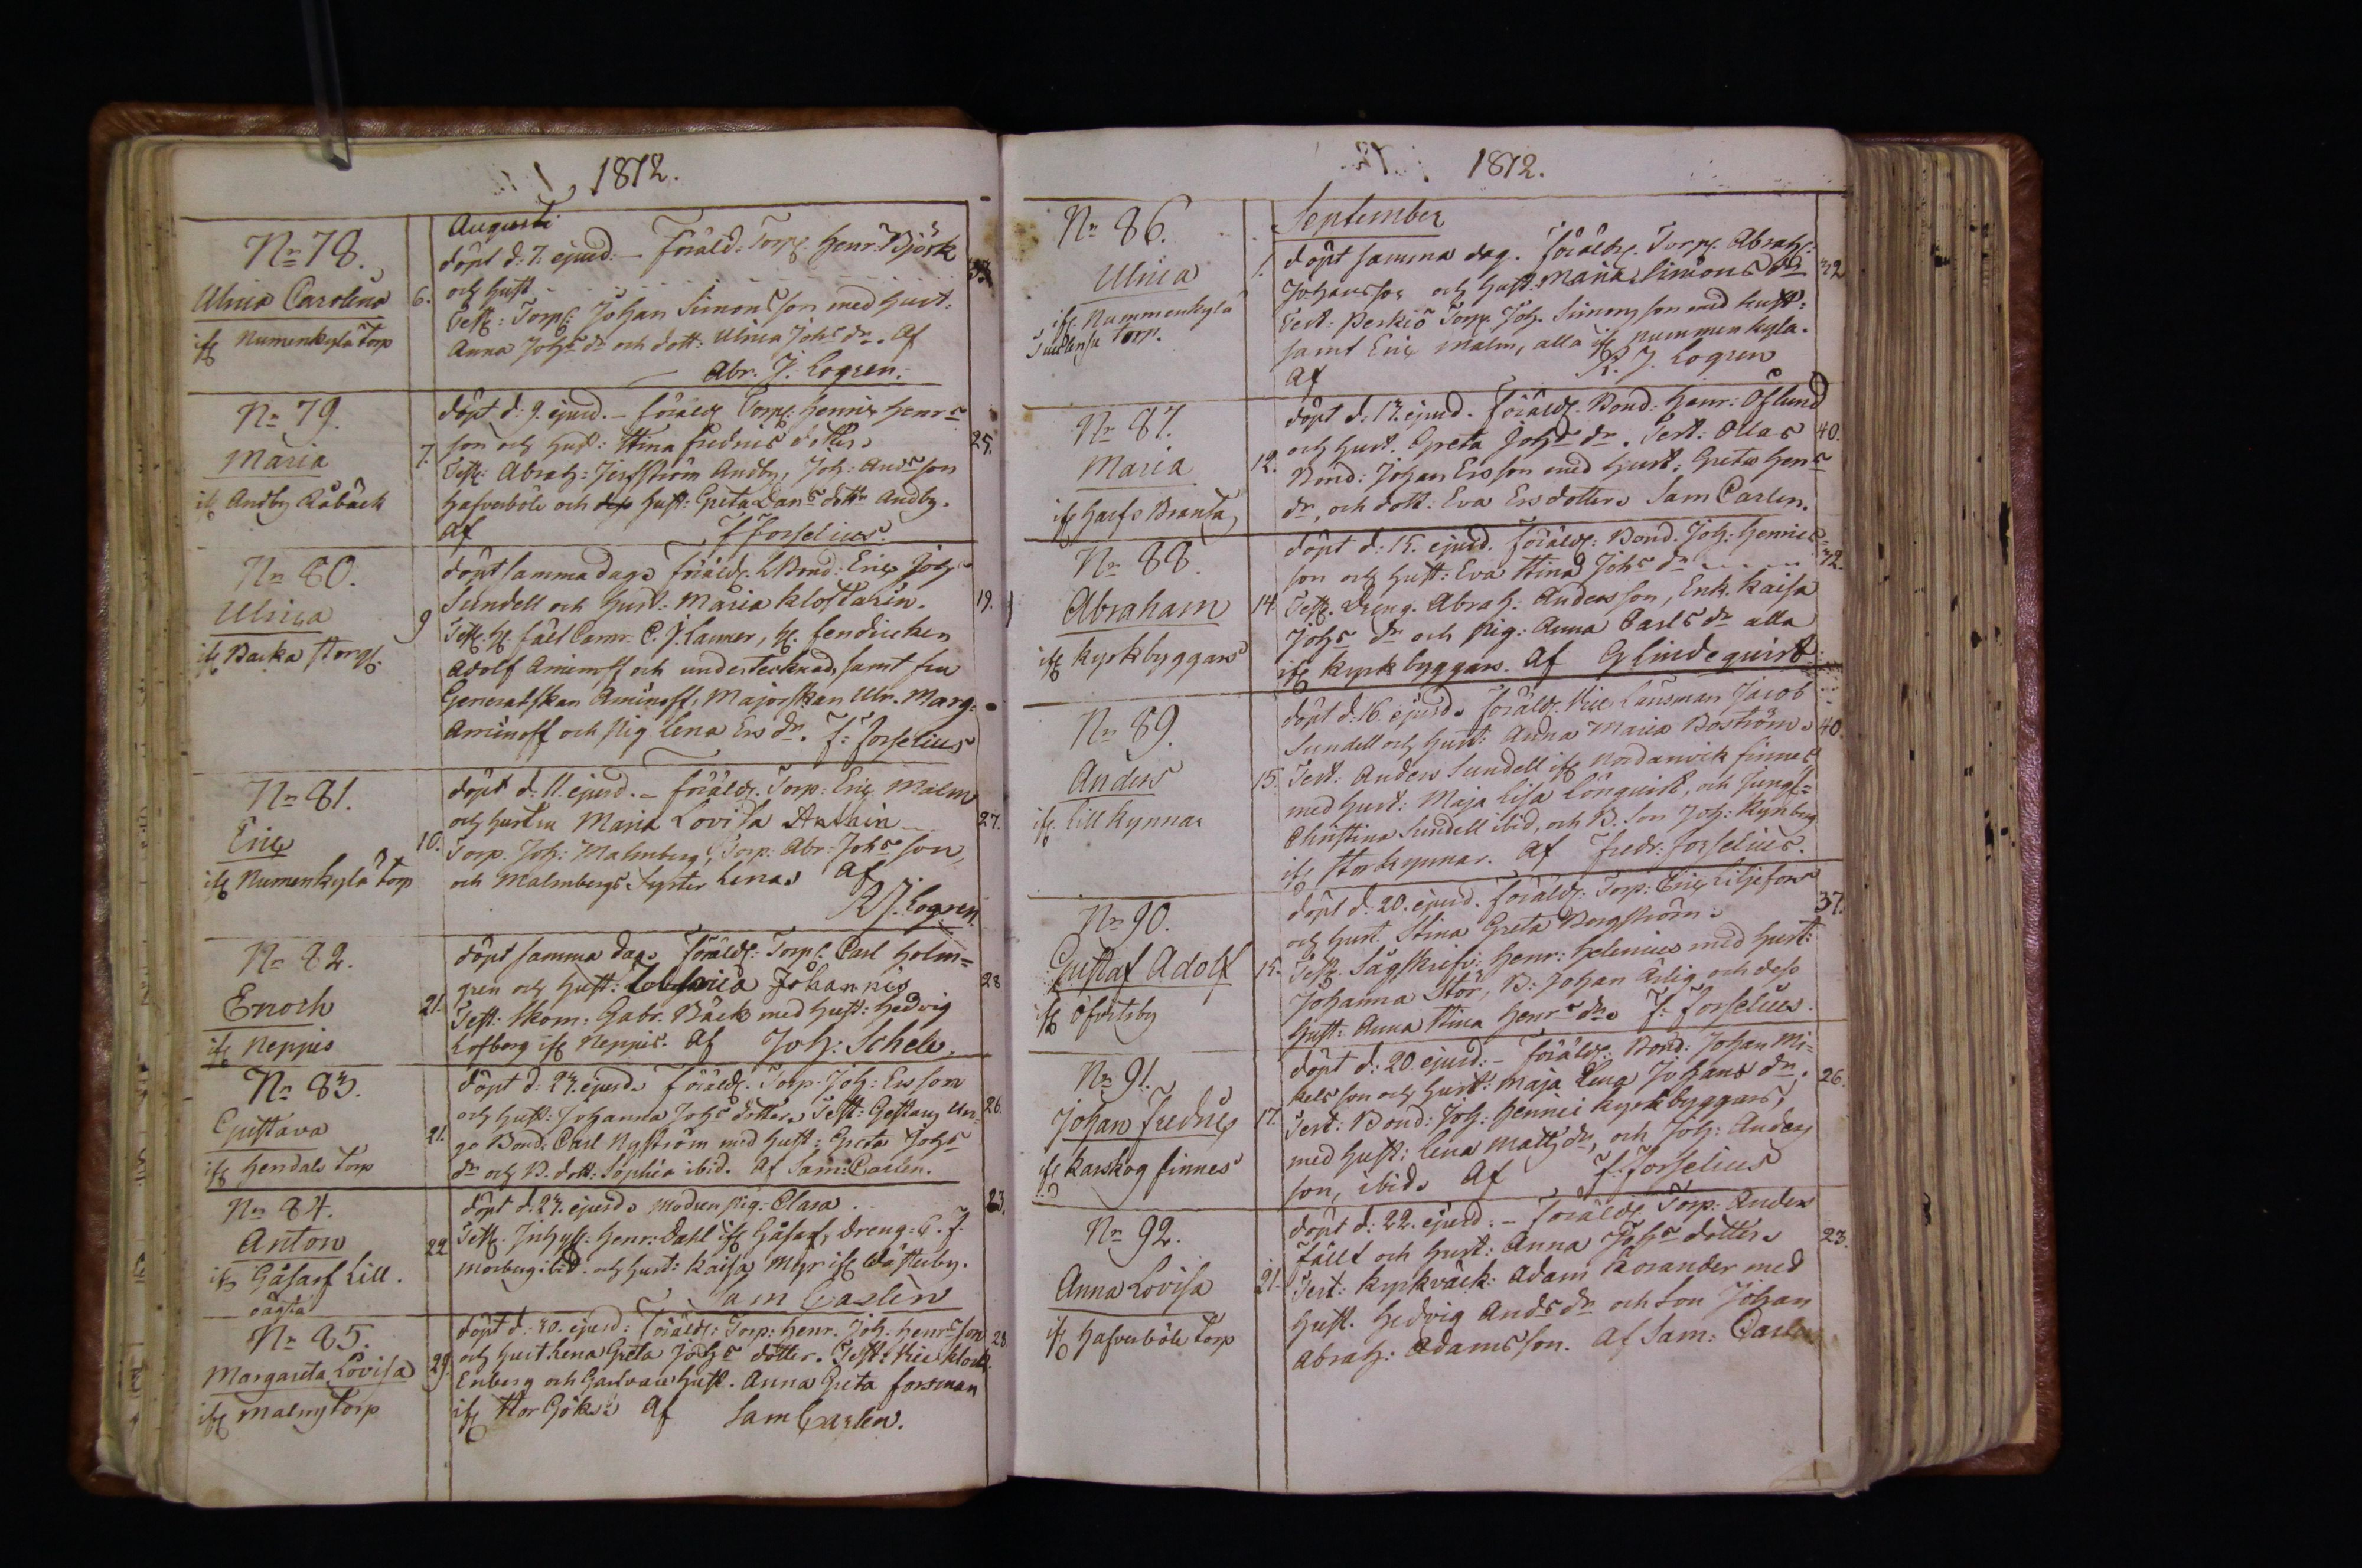 1812.
Augusti
No 78.
Ulrica Carolina
ifr Numenkylä Torp
6.
döpt d: 7. ejusd. – Föräld: Torp: Henr: Björk
och hust
Test: Torp: Johan Simonsson med hust:
Anna Johs dr och dott: Ulrica Johs dr. Af
Abr. J. Logren.
No 79.
Maria
ifr Andby Råbäck
7.
döpt d: 9. ejusd. – Föräldr Torp: Henric Henrs
son och hust: Stina Fredrics dotter
25.
Test: Abrah: Andby, Joh: Andsson
Hafverböle och hust: Greta Dans dottr Andby.
Af
F Forselius.
No 80.
Ulrica
ifr Backa Storgd:
9
döpt samma dag. Föräldr. Bond: Eric Joh
Sundell och hust: Maria Klostarin.
19.
Test. Hr Fält Camr: C. J. Laurer, Hr. Fendricken
Adolf Aminoff och undertecknad, samt fru
Generalskan Aminoff, Majorskan Ulr. Marg:
Aminoff och Pig. Lena Ers dr. F: Forselius
No 81.
Eric
ifr Numenkylä Torp
10.
döpt d: 11. ejusd. – Föräldr. Torp: Eric Malm
och hustru Maria Lovisa
27.
Torp. Joh: Malmberg, Torp: Abr: Johs son,
och Malmbergs syster Lena. Af
R J. Logren.
No 82.
Enoch
ifr Neppis
21.
döpt samma dag. Föräldr: Torp: Carl Holm=
gren och hust: Johannis
28
Test: Skom: Gabr. Bäck med hust: Hedvig
Löfberg ifr Neppis. Af Joh: Schele.
No 83.
Gustava
ifr Hendals Torp
21.
döpt d: 23. ejusd. Föräldr. Torp. Joh: Ersson
och hust: Johanna Johs dotter. Test: Gestans Un=
26.
ge Bond: Carl Nyström med hust: Greta Johs
dr och B. dott: Sophia ibid. Af Sam: Carlen.
No 84.
Anton
ifr Gåsarf Lill.
ägta
22
döpt d: 23. ejusd. Modren Pig: Clara
23.
Test. Inhys: Henr: Dahl ifr Gåsarf, Dreng: C. J.
Morberg ibid. och hust: Kaisa Myr ifr Wästerby.
Sam Carlen
No 85.
Margareta Lovisa
ifr Malmy Torp
29.
döpt d: 30. ejusd: Föräldr: Torp: Henr. Joh. Henrsson
28
och hust Lena Greta Johs dotter. Test: Vice Klock:
Enberg och Garfvare hust. Anna Greta Forsman
ifr Stor Göks: Af Sam Carlen.
1812.
September
No 86.
Ulrica
ifr. Nummenkylä
Torp.
1.
döpt samma dag. Föräldr. Torp. Abrah:
Johansson och hust: Maria Simons dr
32
Test: Perkiö Torp. Joh. Simonsson med hust:
samt Eric Malm, alla ifr Nummenkyla.
Af
R. J. Logren
No 87.
Maria
ifr Harfs Brants
12.
döpt d: 13. ejusd. Föräldr. Bond: Henr: Öflund
och hust. Greta Johs dr. Test: Ollas
40.
Bond: Johan Ersson med hust: Greta Hens
dr, och dott: Eva Ersdotter. Sam Carlen.
No 88.
Abraham
ifr Kyrkbyggars
14.
döpt d: 15. ejusd. Föräldr: Bond. Joh: Henrics=
son och hust: Eva Stina Johs dr
32.
Test. Dreng. Abrah: Andersson, Enk. Kaisa
Johs dr och Pig: Anna Carls dr alla
ifr Kyrkbyggars. Af G Lindequist
No 89.
Anders
ifr. Lill Kynnar
15.
döpt d: 16. ejusd. Föräldr. Vice Länsman Jacob
Sundell och hust: Anna Maria Boström.
40.
Test: Anders Sundell ifr Nordanvik finnes
med hust: Maja Lisa Lönqvist, och Jungf=
Christina Sundell ibid, och B. Son Joh: Kynberg
ifr Storkynnar. Af Fredr: Forselius.
No 90.
Gustaf Adolf
ifr Öfvitsby
15.
döpt d: 20. ejusd. Föräldr: Torp: Eric Liljefors
37.
och hust. Stina Greta Bergström.
Test. Sågskrifv: Henr: Helenius med hust:
Johanna Stör, B: Johan Ärlig och dess
hust: Anna Stina Henrs dr. F: Forselius.
No 91.
Johan Fredric
ifr Karskog finnes
17.
döpt d: 20. ejusd: – Föräldr: Bond: Johan Mi=
kelsson och hust: Maja Lena Johans dr.
26.
Test: Bond: Joh: Henrici Kyrkbyggars,
med hust: Lena Matts dr, och Joh: Anders
son, ibid. Af F: Forselius
No 92.
Anna Lovisa
ifr Hafverböle Torp
21.
döpt d: 22. ejusd. – Föräldr Torp: Anders
Fällt och hust: Anna Johs dotter.
23.
Test: Kyrkväck: Adam Rosander med
hust. Hedvig Ands dr och Son Johan
Abrah: Adamsson. Af Sam: Carlen